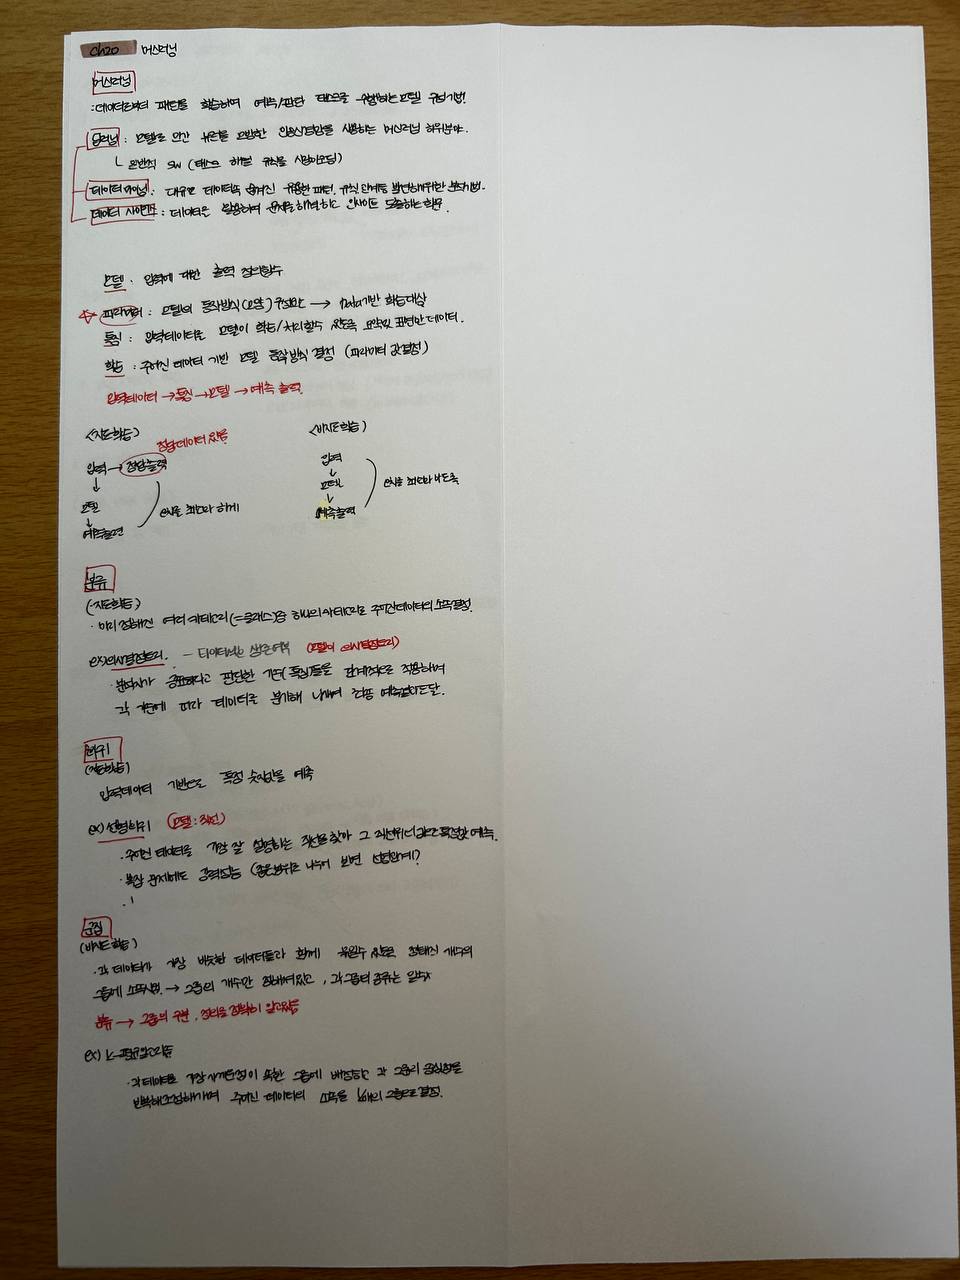 ch20 머신러닝
머신러닝
: 데이터로부터 패턴을 학습하여 예측/판단 태스크를 수행하는 모델 구현기법!
딥러닝 : 모델로 인간 뉴런을 모방한 인공신경망을 사용하는 머신러닝 하위분야.
└ 일반적 SW (태스크 해결 규칙을 사람이 코딩)
데이터마이닝 : 대규모 데이터속 숨겨진 유용한 패턴, 규칙, 관계등 발견하기위한 분석기법.
데이터 사이언스 : 데이터를 활용하여 문제를 해결하고 인사이트 도출하는 학문.
모델 : 입력에 대한 출력 정의함수
파라미터 : 모델의 동작방식(모양) 구체화 → 기반 학습대상
특징 : 입력데이터를 모델이 학습/처리할수 있도록 요약및 표현한 데이터.
학습 : 주어진 데이터 기반 모델 동작방식 결정 (파라미터 값 결정)
입력데이터 → 특징 → 모델 → 예측 출력
<지도학습> 정답데이터 있음
입력 → 정답출력
↓
모델
↓
예측출력
오차를 최소화 하게
<비지도학습>
입력
↓
모델
↓
예측출력
최소화 되도록
분류
(지도학습)
· 미리 정해진 여러 카테고리(=클래스)중 하나의 카테고리로 주어진데이터의 소속결정.
ex) 의사결정트리. - 타이타닉 생존여부 (모델이 의사결정트리)
· 분석자가 중요하다고 판단한 기준(특징)들을 단계적으로 적용하며
각 기준에 따라 데이터를 분기해 나가며 최종 예측값에 도달.
회귀
(지도학습)
입력데이터 기반으로 특정 숫자값을 예측
ex) 선형회귀 (모델 : 직선)
· 주어진 데이터를 가장 잘 설명하는 직선을 찾아 그 직선위의 값으로 특정값 예측.
· 복잡 문제에도 강력성능 (좁은범위로 나누어 보면 선형관계?
군집
(비지도 학습)
· 각 데이터가 가장 비슷한 데이터들과 함께 묶일수 있도록 정해진 개수의
그룹에 소속시킴. → 그룹의 개수만 정해져있고, 각 그룹의 종류는 알수X
분류 → 그룹의 구분, 정의를 정확히 알고있음
ex) K-평균알고리즘
· 각 데이터를 가장 속한 그룹에 배정하고 각 그룹의 중심점을
반복해 조정해가며 주어진 데이터의 소속을 k개의 그룹으로 결정.